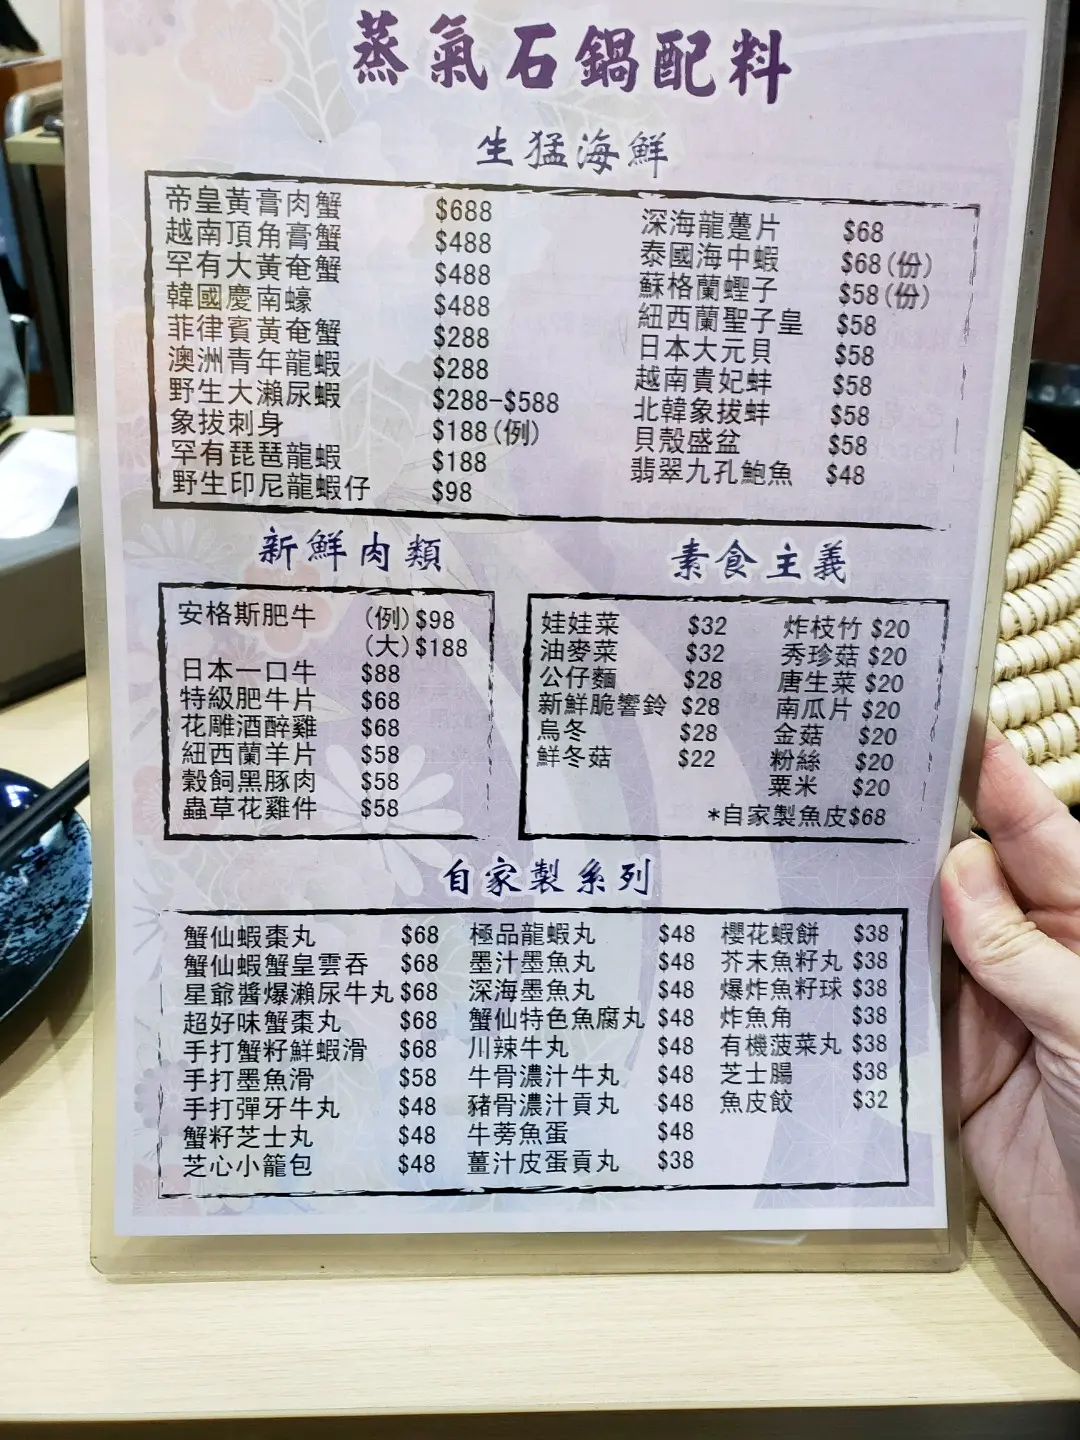 蒸氣石鍋配料
生猛海鮮
帝皇黃膏肉蟹 $688
越南頂角膏蟹 $488
罕有大黃奄蟹 $488
韓國慶南蠔 $488
菲律賓黃奄蟹 $288
澳洲青年龍蝦 $288
野生大瀨尿蝦 $288-$588
象拔刺身 $188(例)
罕有琵琶龍蝦 $188
野生印尼龍蝦仔 $98
深海龍躉片 $68
泰國海中蝦 $68(份)
蘇格蘭蟶子 $58(份)
紐西蘭聖子皇 $58
日本大元貝 $58
越南貴妃蚌 $58
北韓象拔蚌 $58
貝殼盛盆 $58
翡翠九孔鮑魚 $48
新鮮肉類
安格斯肥牛 (例)$98
(大)$188
日本一口牛 $88
特級肥牛片 $68
花雕酒醉雞 $68
紐西蘭羊片 $58
穀飼黑豚肉 $58
蟲草花雞件 $58
素食主義
娃娃菜 $32
油麥菜 $32
公仔麵 $28
新鮮脆響鈴 $28
烏冬 $28
鮮冬菇 $22
炸枝竹 $20
秀珍菇 $20
唐生菜 $20
南瓜片 $20
金菇 $20
粉絲 $20
粟米 $20
*自家製魚皮$68
自家製系列
蟹仙蝦棗丸 $68
蟹仙蝦蟹皇雲吞 $68
星爺醬爆瀨尿牛丸 $68
超好味蟹棗丸 $68
手打蟹籽鮮蝦滑 $68
手打墨魚滑 $58
手打彈牙牛丸 $48
蟹籽芝士丸 $48
芝心小籠包 $48
極品龍蝦丸 $48
墨汁墨魚丸 $48
深海墨魚丸 $48
蟹仙特色魚腐丸 $48
川辣牛丸 $48
牛骨濃汁牛丸 $48
豬骨濃汁貢丸 $48
牛蒡魚蛋 $48
薑汁皮蛋貢丸 $38
櫻花蝦餅 $38
芥末魚籽丸 $38
爆炸魚籽球 $38
炸魚角 $38
有機菠菜丸 $38
芝士腸 $38
魚皮餃 $32